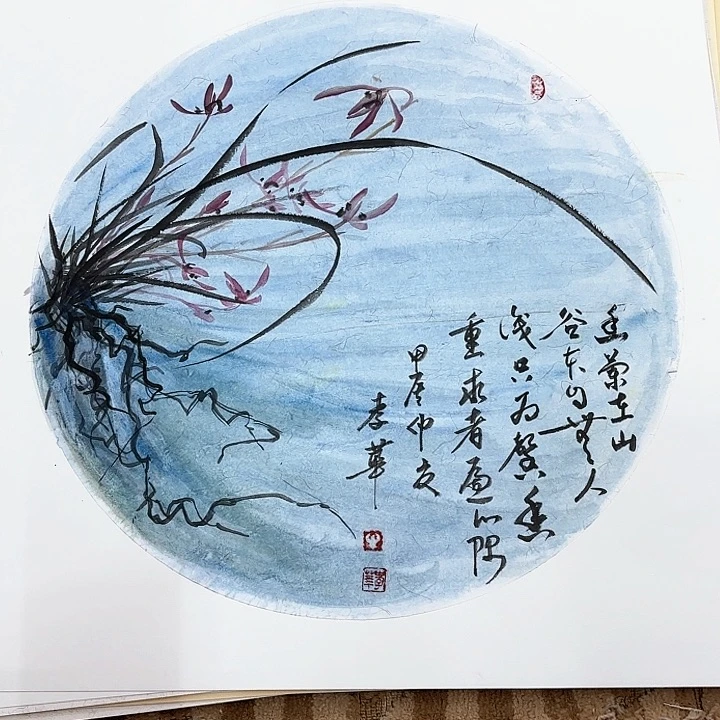 幽蘭在山
谷本自無人
識只为馨香
重求者遍山隅
甲辰仲夏
李華